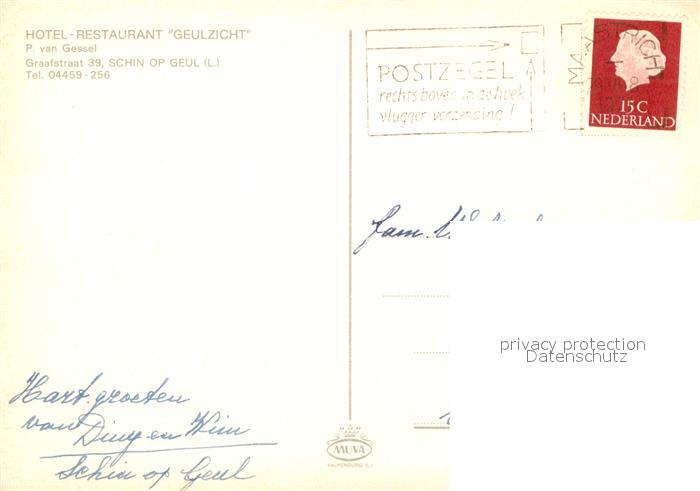 HOTEL-RESTAURANT "GEULZICHT"
P. van Gessel
Graafstraat 39, SCHIN OP GEUL (L.)
Tel. 04459-256
POSTZEGEL
rechts boven in de hoek
vlugger verzending!
MAASTRICHT
15 C
NEDERLAND
Fam.
privacy protection
Datenschutz
Hart. groeten
van Diny en Wim
Schin op Geul
MUVA
VALKENBURG (L.)